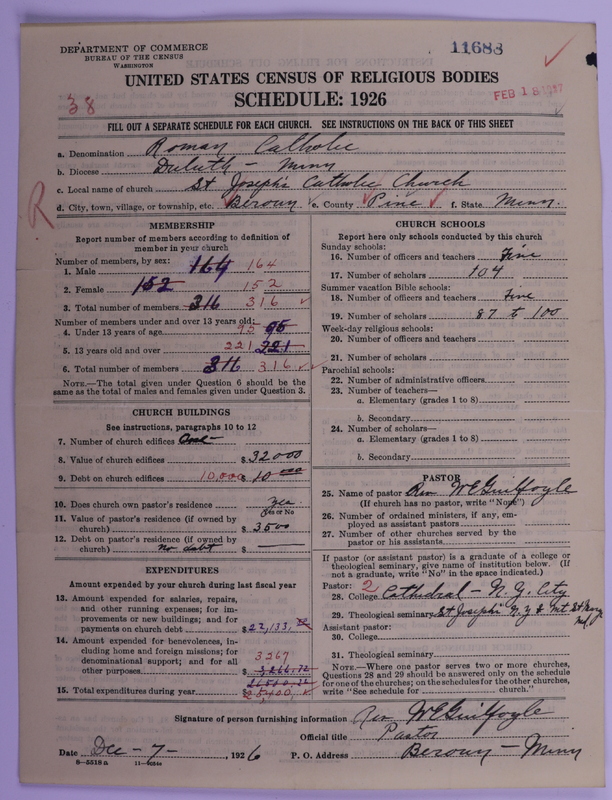 DEPARTMENT OF COMMERCE
BUREAU OF THE CENSUS
WASHINGTON
11683
UNITED STATES CENSUS OF RELIGIOUS BODIES
SCHEDULE: 1926
38
FEB 18 1927
FILL OUT A SEPARATE SCHEDULE FOR EACH CHURCH. SEE INSTRUCTIONS ON THE BACK OF THIS SHEET
a. Denomination Roman Catholic
b. Diocese Duluth - Minn
c. Local name of church St Joseph's Catholic Church
d. City, town, village, or township, etc. Beroun e. County Pine f. State Minn.
R
MEMBERSHIP
Report number of members according to definition of member in your church
Number of members, by sex:
1. Male 164 164
2. Female 152 152
3. Total number of members 316 316
Number of members under and over 13 years old:
4. Under 13 years of age 95 95
5. 13 years old and over 221 221
6. Total number of members 316 316
NOTE.—The total given under Question 6 should be the same as the total of males and females given under Question 3.
CHURCH BUILDINGS
See instructions, paragraphs 10 to 12
7. Number of church edifices One-
8. Value of church edifices $ 32000
9. Debt on church edifices 10,000 $ 10 000
10. Does church own pastor's residence Yes
Yes or No
11. Value of pastor's residence (if owned by church) $ 3500
12. Debt on pastor's residence (if owned by church) no debt $
EXPENDITURES
Amount expended by your church during last fiscal year
13. Amount expended for salaries, repairs, and other running expenses; for improvements or new buildings; and for payments on church debt $ 22,133
14. Amount expended for benevolences, including home and foreign missions; for denominational support; and for all other purposes 3267 $ 3266.72
15. Total expenditures during year $ 25,400
CHURCH SCHOOLS
Report here only schools conducted by this church
Sunday schools:
16. Number of officers and teachers Five
17. Number of scholars 104
Summer vacation Bible schools:
18. Number of officers and teachers Five
19. Number of scholars 87 to 100
Week-day religious schools:
20. Number of officers and teachers
21. Number of scholars
Parochial schools:
22. Number of administrative officers
23. Number of teachers—
a. Elementary (grades 1 to 8)
b. Secondary
24. Number of scholars—
a. Elementary (grades 1 to 8)
b. Secondary
PASTOR
25. Name of pastor Rev W E Guilfoyle
(If church has no pastor, write "None")
26. Number of ordained ministers, if any, employed as assistant pastors
27. Number of other churches served by the pastor or his assistants
If pastor (or assistant pastor) is a graduate of a college or theological seminary, give name of institution below. (If not a graduate, write "No" in the space indicated.)
Pastor: 2
28. College Cathedral - N.Y. City
29. Theological seminary St Joseph's N.Y & Mt. St Mary Md.
Assistant pastor:
30. College
31. Theological seminary
NOTE.—Where one pastor serves two or more churches, Questions 28 and 29 should be answered only on the schedule for one of the churches; on the schedules for the other churches, write "See schedule for church."
Signature of person furnishing information Rev W E Guilfoyle
Official title Pastor
Date Dec - 7 - , 1926 P. O. Address Beroun - Minn
8—5518 a